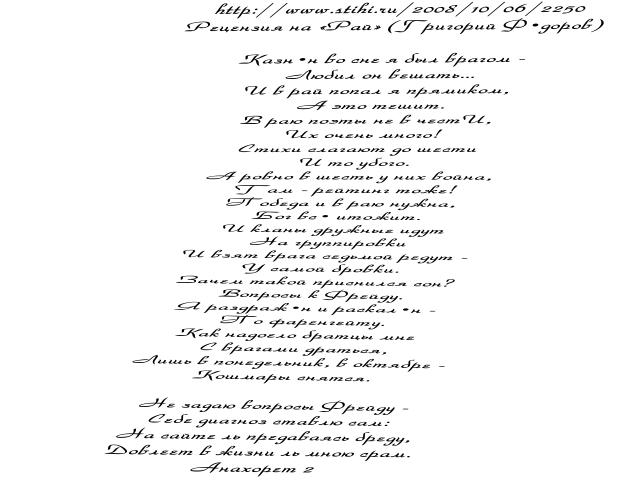 http://www.stihi.ru/2008/10/06/2250
Рецензия на «Рай» (Григорий Ф•доров)
Казн•н во сне я был врагом -
Любил он вешать...
И в рай попал я прямиком,
А это тешит.
В раю поэты не в честИ,
Их очень много!
Стихи слагают до шести
И то убого.
А ровно в шесть у них война,
Там - рейтинг тоже!
Победа и в раю нужна,
Бог вс• итожит.
И кланы дружные идут
На группировки
И взят врага седьмой редут -
У самой бровки.
Зачем такой приснился сон?
Вопросы к Фрейду.
Я раздраж•н и раскал•н -
По фаренгейту.
Как надоело братцы мне
С врагами драться,
Лишь в понедельник, в октябре -
Кошмары снятся.
Не задаю вопросы Фрейду -
Себе диагноз ставлю сам:
На сайте ль предаваясь бреду,
Довлеет в жизни ль мною срам.
Анахорет 2